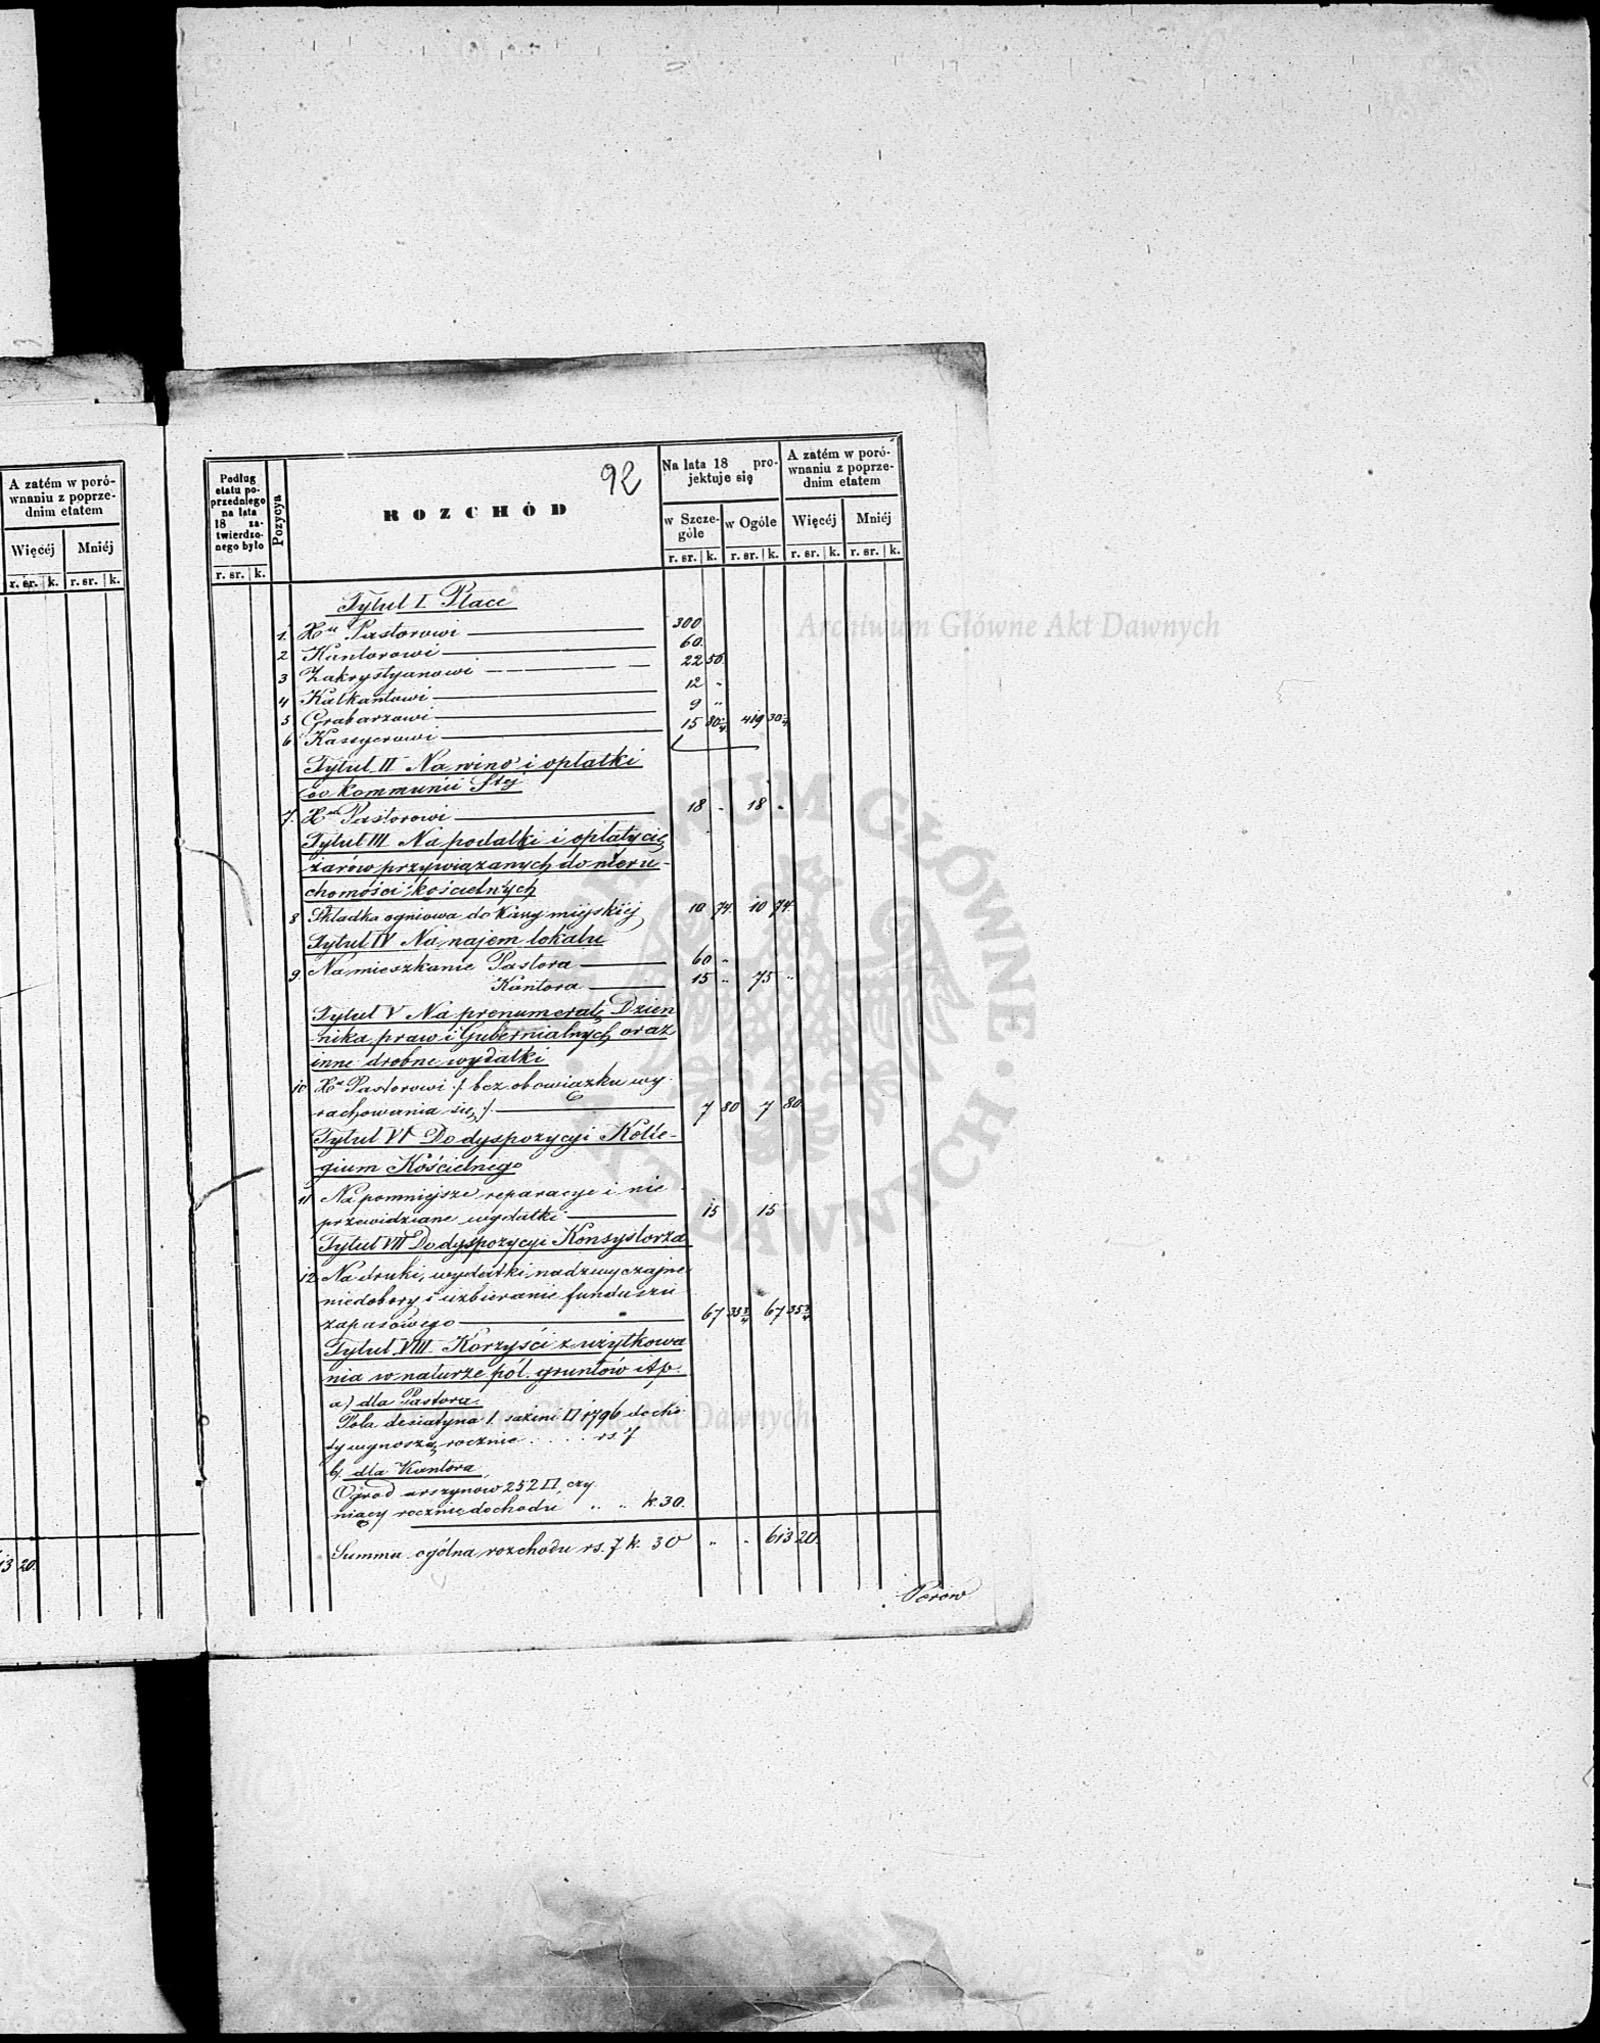 A zatém w poró-
wnaniu z poprze-
dnim etatem
Więcéj Mniéj
r. sr. k. r. sr. k.
13 20.
92
Podług
etatu po-
przedniego
na lata
18 za-
twierdzo-
nego było
r. sr. k.
Pozycya
ROZCHÓD
Na lata 18 pro-
jektuje się
w Szcze-
góle
w Ogóle
r. sr. k. r. sr. k.
A zatém w poró-
wnaniu z poprze-
dnim etatem
Więcéj Mniéj
r. sr. k. r. sr. k.
Tytuł I. Płace
1. Xdu Pastorowi 300
2 Kantorowi 60.
3 Zakrystyanowi 22 50.
4 Kalkantowi 12 "
5 Grabarzowi 9 "
6 Kassyerowi 15 80 1/4 419 30 1/4
Tytuł II Na wino i opłatki
do kommunii Stej
7. Xdu Pastorowi 18 " 18 "
Tytuł III Na podatki i opłaty cię
żarów przywiązanych do nieru-
chomości kościelnych
8 Składka ogniowa do Kassy miejskiej 10 74. 10 74.
Tytuł IV Na najem lokalu
9 Na mieszkanie Pastora 60 "
Kantora 15 " 75 "
Tytuł V Na prenumeratę Dzien
nika praw i Gubernialnych oraz
inne drobne wydatki
10 Xdu Pastorowi /: bez obowiązku wy
rachowania się :/ 7 80 7 80
Tytuł VI Do dyspozycyi Kolle-
gium Kościelnego
11 Na pomniejsze reparacye i nie
przewidziane wydatki 15 15
Tytuł VII Do dyspozycyi Konsystorza
12 Na druki, wydatki nadzwyczajne
niedobory i uzbieranie funduszu
zapasowego 67 35 3/4 67 35 3/4
Tytuł VIII. Korzyści z użytkowa
nia w naturze pól. gruntów itp.
a) dla Pastora
Pola desiatyna 1. sażeni □ 1796 docho
dy wynoszą rocznie . . . . rs. 7
b) dla Kantora
Ogród arszynów 252 □, czy
niący rocznie dochodu " " k. 30.
Summa ogólna rozchodu rs. 7 k. 30 " " 613 20.
Porów
Archiwum Główne Akt Dawnych
ARCHIWUM GŁÓWNE AKT DAWNYCH
Archiwum Główne Akt Dawnych